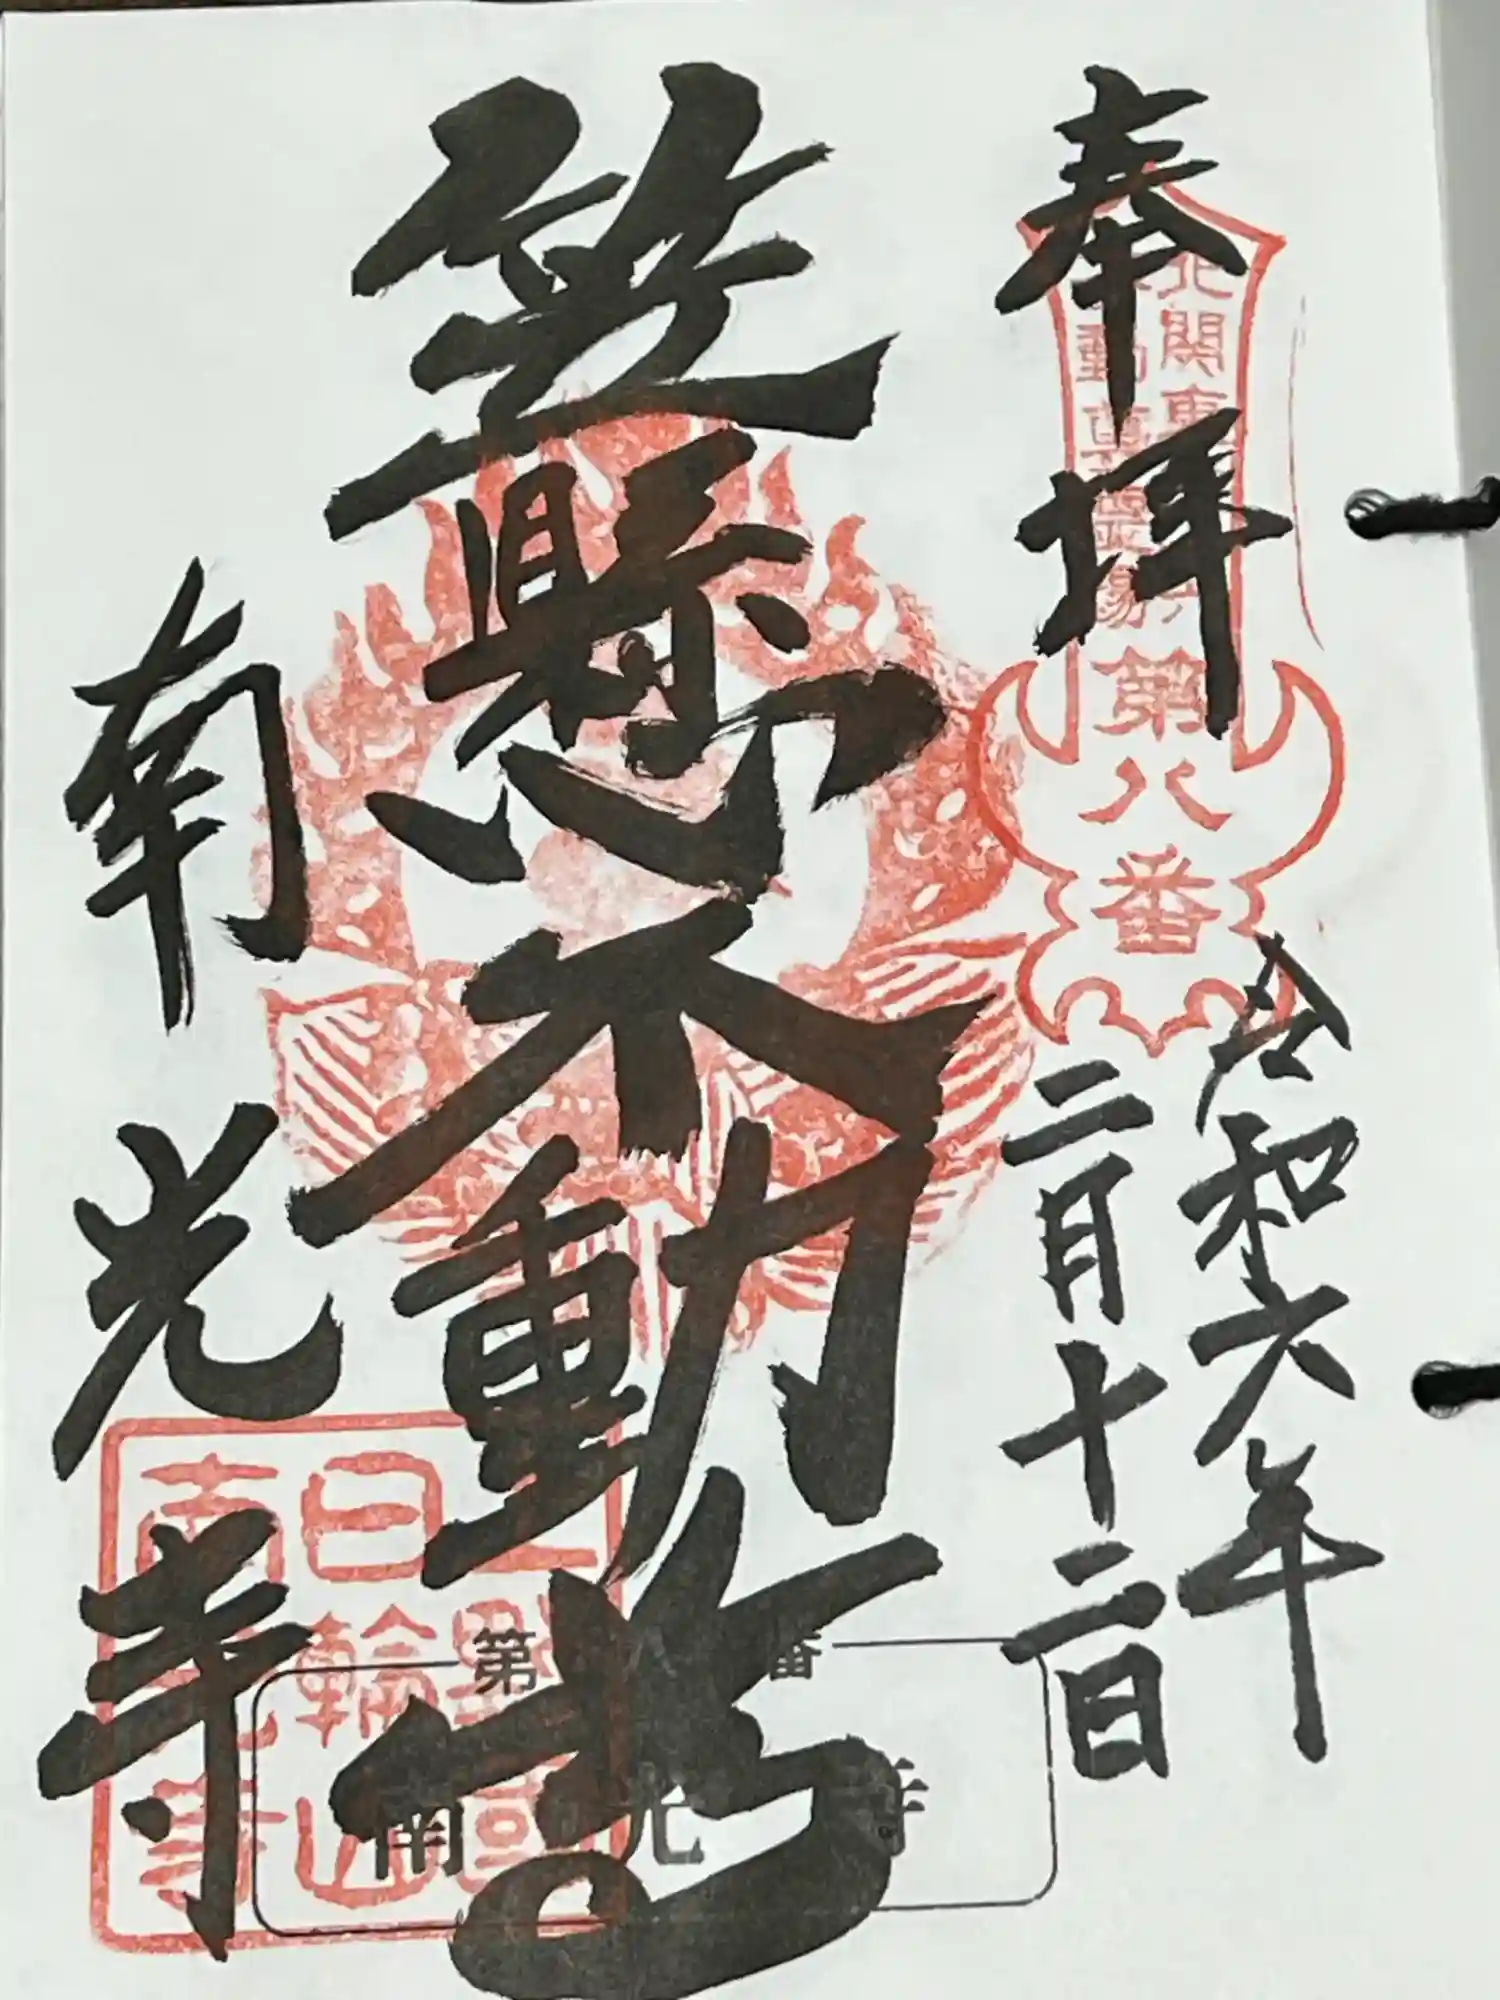 奉拝
北関東
動尊霊場
第八番
令和六年
二月十二日
笠懸不動尊
南光寺
日輪山
南光寺
第 番
南光寺